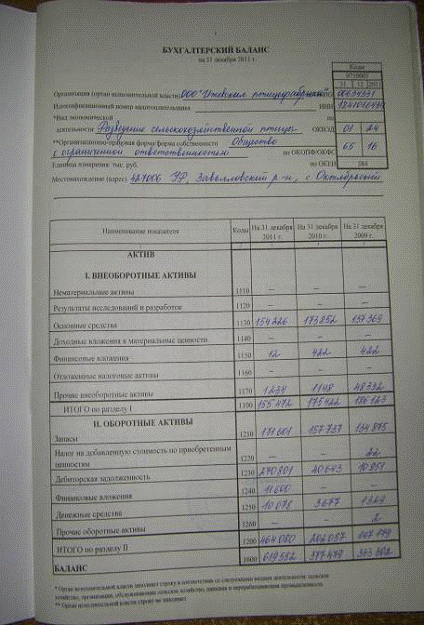 1
БУХГАЛТЕРСКИЙ БАЛАНС
на 31 декабря 2011 г.
Коды
0710001
31 12 2011
Организация (орган исполнительной власти) ООО "Ижевская птицефабрика"
Идентификационный номер налогоплательщика ИНН
*Вид экономической по
деятельности Разведение сельскохозяйственной птицы ОКВЭД 01 24
**Организационно-правовая форма/форма собственности Общество
с ограниченной ответственностью по ОКОПФ/ОКФС 65 16
Единица измерения: тыс. руб. по ОКЕИ 384
Местонахождение (адрес) 427006 УР, Завьяловский р-н, с. Октябрьский
Наименование показателя Коды На 31 декабря 2011 г. На 31 декабря 2010 г. На 31 декабря 2009 г.
АКТИВ
I. ВНЕОБОРОТНЫЕ АКТИВЫ
Нематериальные активы 1110 – – –
Результаты исследований и разработок 1120 – – –
Основные средства 1130 154226 173852 137369
Доходные вложения в материальные ценности 1140 – – –
Финансовые вложения 1150 12 422 422
Отложенные налоговые активы 1160 – – –
Прочие внеоборотные активы 1170 1234 1148 48332
ИТОГО по разделу I 1100 155472 175422 186123
II. ОБОРОТНЫЕ АКТИВЫ
Запасы 1210 171601 157737 134875
Налог на добавленную стоимость по приобретенным
ценностям 1220 – – 22
Дебиторская задолженность 1230 270801 40643 10951
Финансовые вложения 1240 11600 – –
Денежные средства 1250 10078 3677 1329
Прочие оборотные активы 1260 – – 2
ИТОГО по разделу II 1200 464080 202057 147179
БАЛАНС 1600 619552 377479 333302
* Орган исполнительной власти заполняет строку в соответствии со следующими видами деятельности: сельское
хозяйство, организации, обслуживающие сельское хозяйство, пищевая и перерабатывающая промышленность
** Орган исполнительной власти строку не заполняет